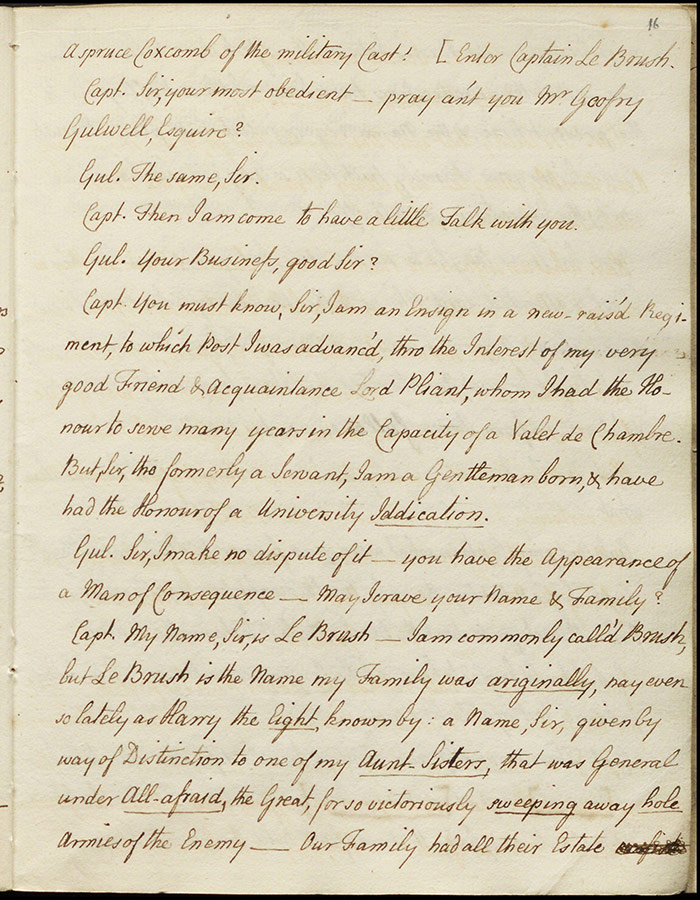 16
a spruce Coxcomb of the military Cast! [Enter Captain Le Brush.
Capt. Sir, your most obedient — pray a'nt you Mr Goofry
Gulwell, Esquire?
Gul. The same, Sir.
Capt. Then I am come to have a little Talk with you.
Gul. Your Business, good Sir?
Capt. You must know, Sir, I am an Ensign in a new-rais'd Regi-
ment, to which Post I was advanc'd, thro the Interest of my very
good Friend & Acquaintance Lord Pliant, whom I had the Ho-
nour to serve many years in the Capacity of a Valet de Chambre.
But, Sir, tho formerly a Servant, I am a Gentleman born, & have
had the Honour of a University Iddication.
Gul. Sir, I make no dispute of it — you have the Appearance of
a Man of Consequence — May I crave your Name & Family?
Capt. My Name, Sir, is Le Brush — I am commonly call'd Brush,
but Le Brush is the Name my Family was ariginally, nay even
so lately as Harry the Eight, known by: a Name, Sir, given by
way of Distinction to one of my Aunt-Sisters, that was General
under All-afraid, the Great, for so victoriously sweeping away hole
Armies of the Enemy — Our Family had all their Estate